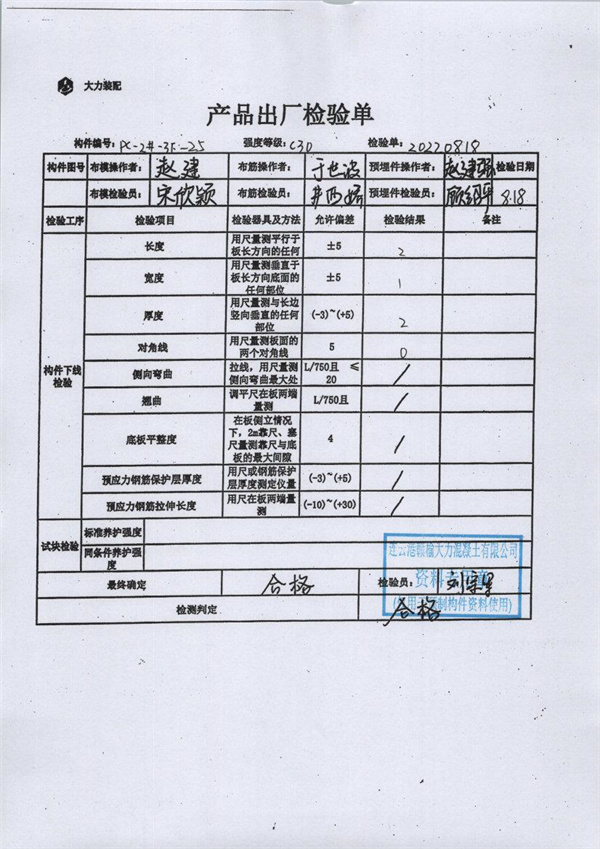 大力装配
产品出厂检验单
构件编号: PC-2#-3F-25 强度等级: C30 检验单: 20220818
构件图号 布模操作者: 赵建 布筋操作者: 于世波 预埋件操作者: 赵建强 检验日期
布模检验员: 宋欣颖 布筋检验员: 预埋件检验员: 8.18
检验工序 检验项目 检验器具及方法 允许偏差 检验结果 备注
构件下线检验
长度 用尺量测平行于板长方向的任何 ±5 2
宽度 用尺量测垂直于板长方向底面的任何部位 ±5 1
厚度 用尺量测与长边竖向垂直的任何部位 (-3)~(+5) 2
对角线 用尺量测板面的两个对角线 5 0
侧向弯曲 拉线，用尺量测侧向弯曲最大处 L/750且 ≤20 /
翘曲 调平尺在板两端量测 L/750且 /
底板平整度 在板侧立情况下，2m靠尺、塞尺量测靠尺与底板的最大间隙 4 /
预应力钢筋保护层厚度 用尺或钢筋保护层厚度测定仪量 (-3)~(+5) /
预应力钢筋拉伸长度 用尺在板两端量测 (-10)~(+30) /
试块检验 标准养护强度
同条件养护强度
最终确定 合格 检验员:
检测判定 合格
连云港赣榆大力混凝土有限公司
资料专用章
制构件资料使用)